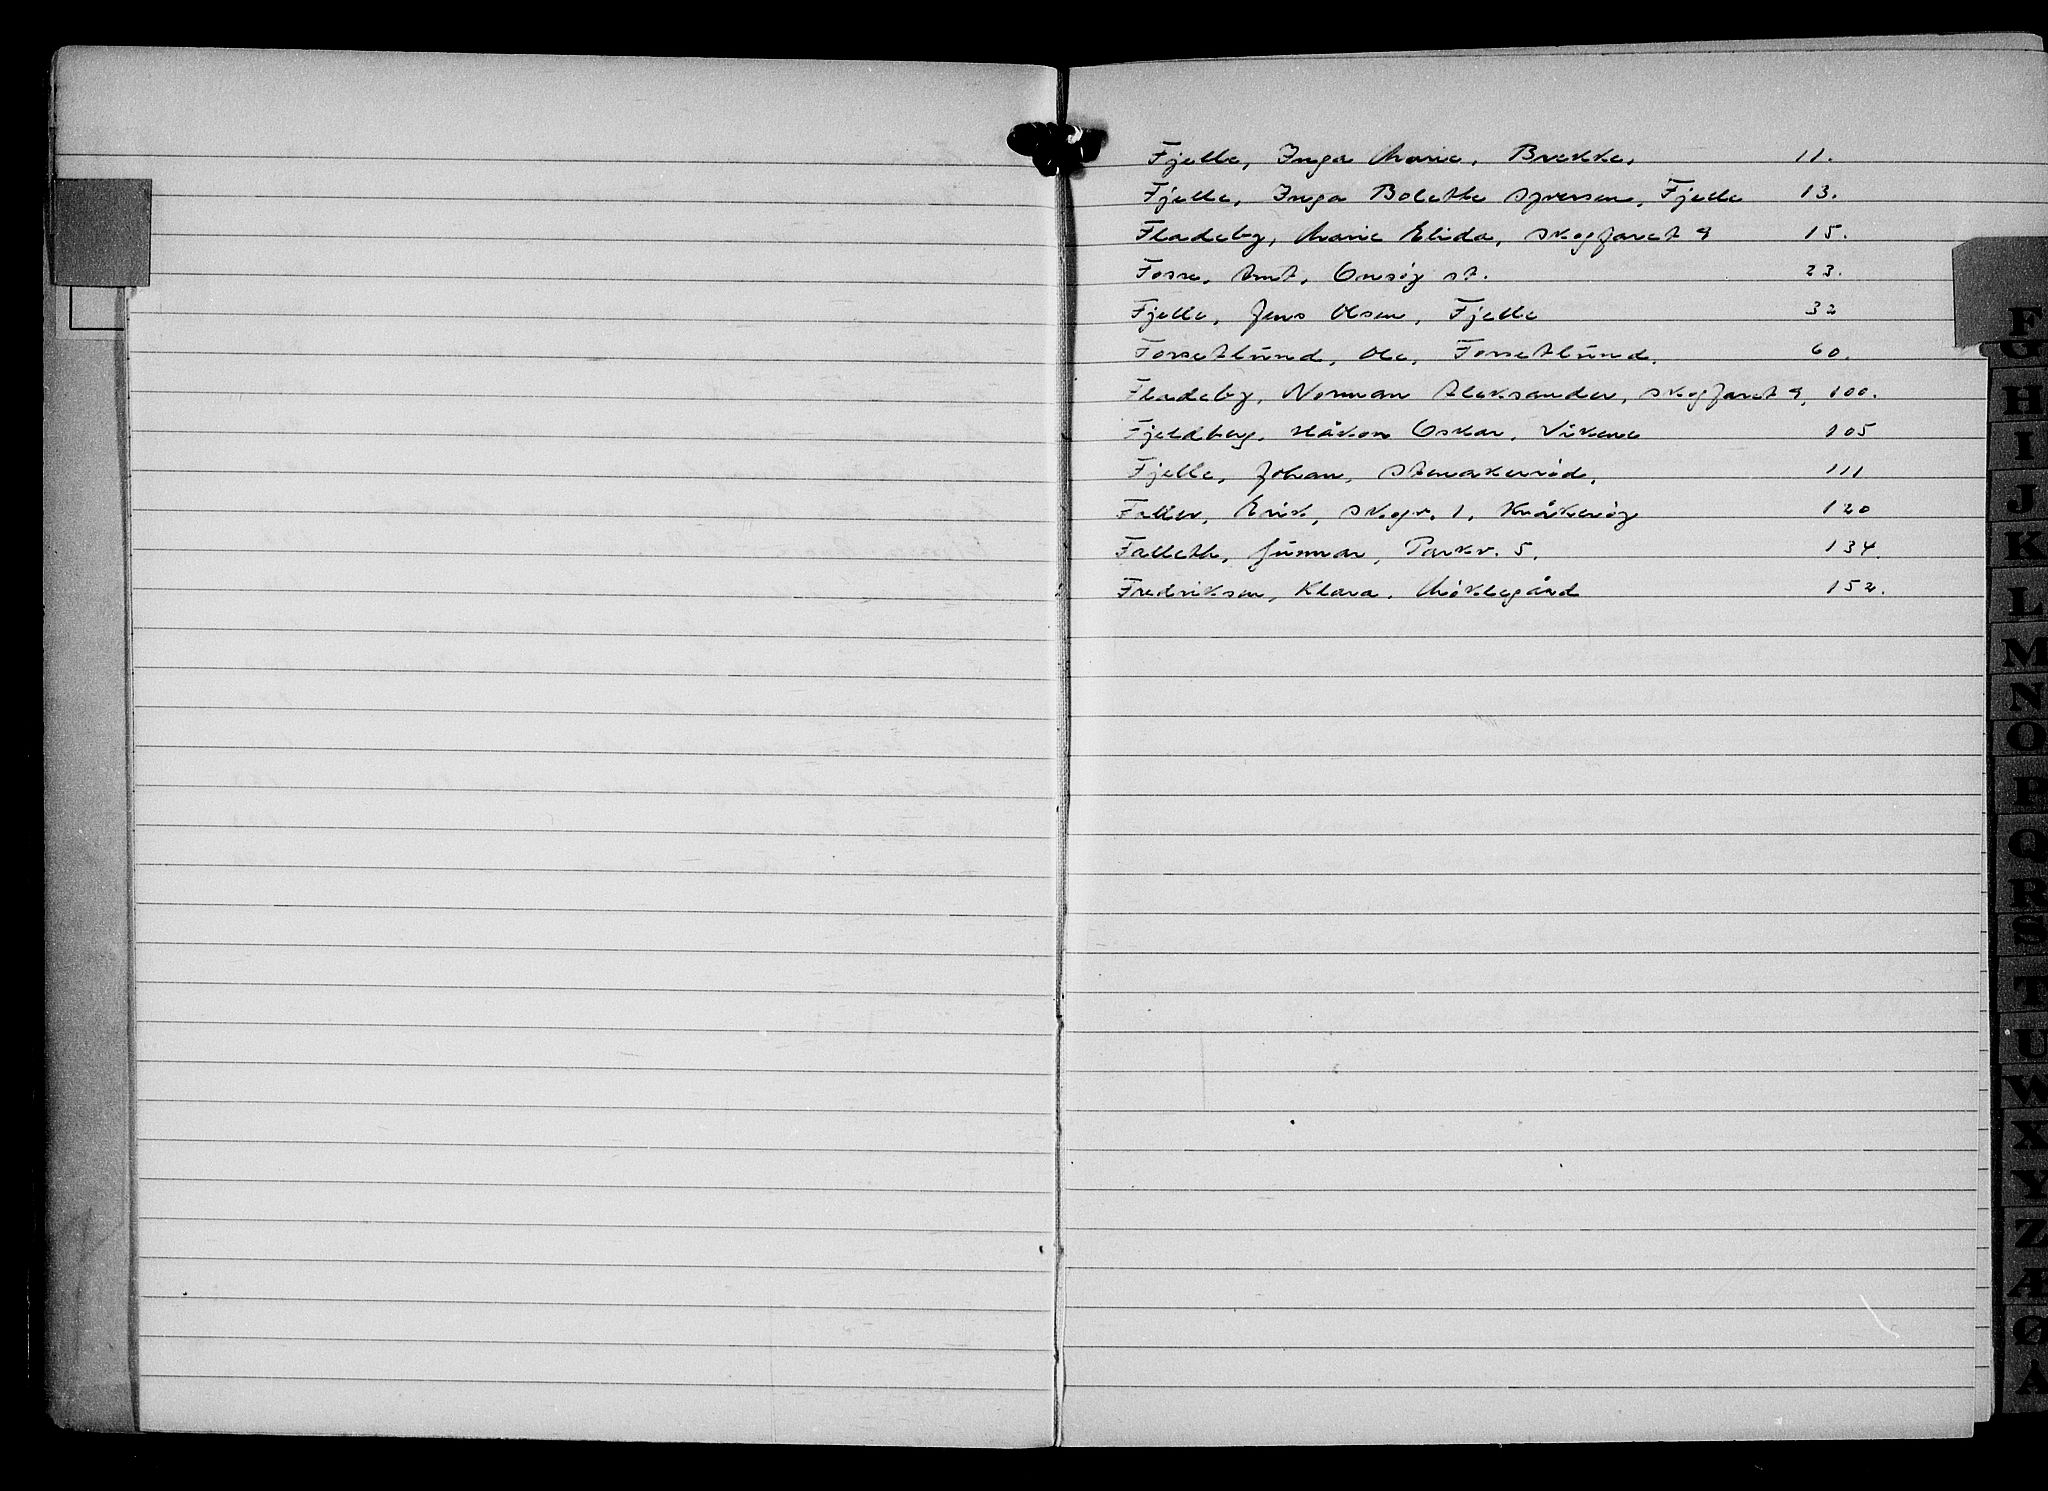 Fjelle, Inga Marie, Brekke, 11.
Fjelle, Inga Bolette Syversen, Fjelle 13.
Fladeby, Marie Elida, Skogfaret 9 15.
Fosse, Amt, Onsøy st. 23.
Fjelle, Jens Olsen, Fjelle 32
Forsetlund, Ole, Forsetlund. 60.
Fladeby, Norman Aleksander, Skogfaret 9, 100.
Fjeldberg, Håkon Oskar, Vikene 105
Fjelle, Johan, 111
Faller, Erik, Skogv. 1, Kråkerøy 120
Falleth, Gunnar, Parkv. 5. 134.
Fredriksen, Klara, Møklegård 152.
F
G
H
I
J
K
L
M
N
O
P
Q
R
S
T
U
W
X
Y
Z
Æ
Ø
A